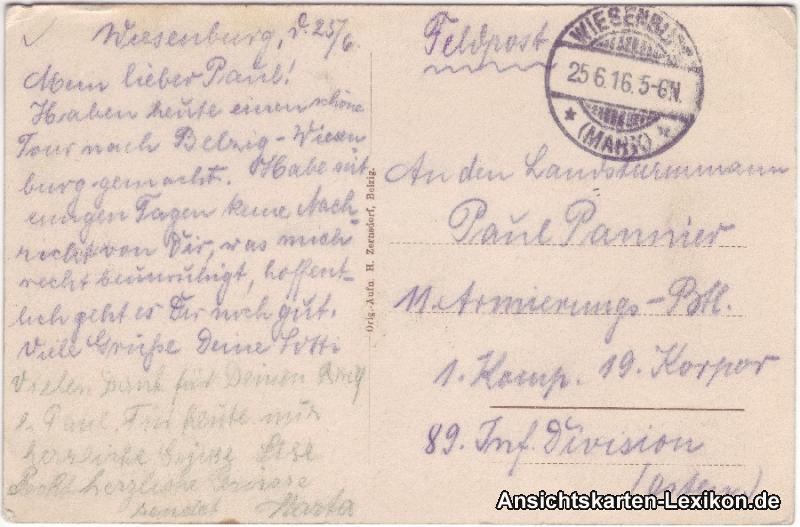 Wiesenburg, d. 25/6
Mein lieber Paul!
Haben heute einen schöne
Tour nach Belzig-Wiesen
burg gemacht. Habe seit
einigen Tagen keine Nach-
richt von Dir, was mich
recht beunruhigt, hoffent-
lich geht es Dir noch gut.
Viele Grüße Deine Lotti
Vielen Dank für Deinen Brief
l. Paul. Für heute nur
herzliche Grüsse Else
Recht herzliche Grüsse
sendet Marta
Orig.-Aufn. H. Zernsdorf, Belzig.
Feldpost
WIESENBURG
25.6.16.5-6N.
* (MARK) *
An den Landsturmmann
Paul Pannier
11. Armierungs-Btl.
1. Komp. 19. Korpor
89. Inf. Division
(Osten)
Ansichtskarten-Lexikon.de